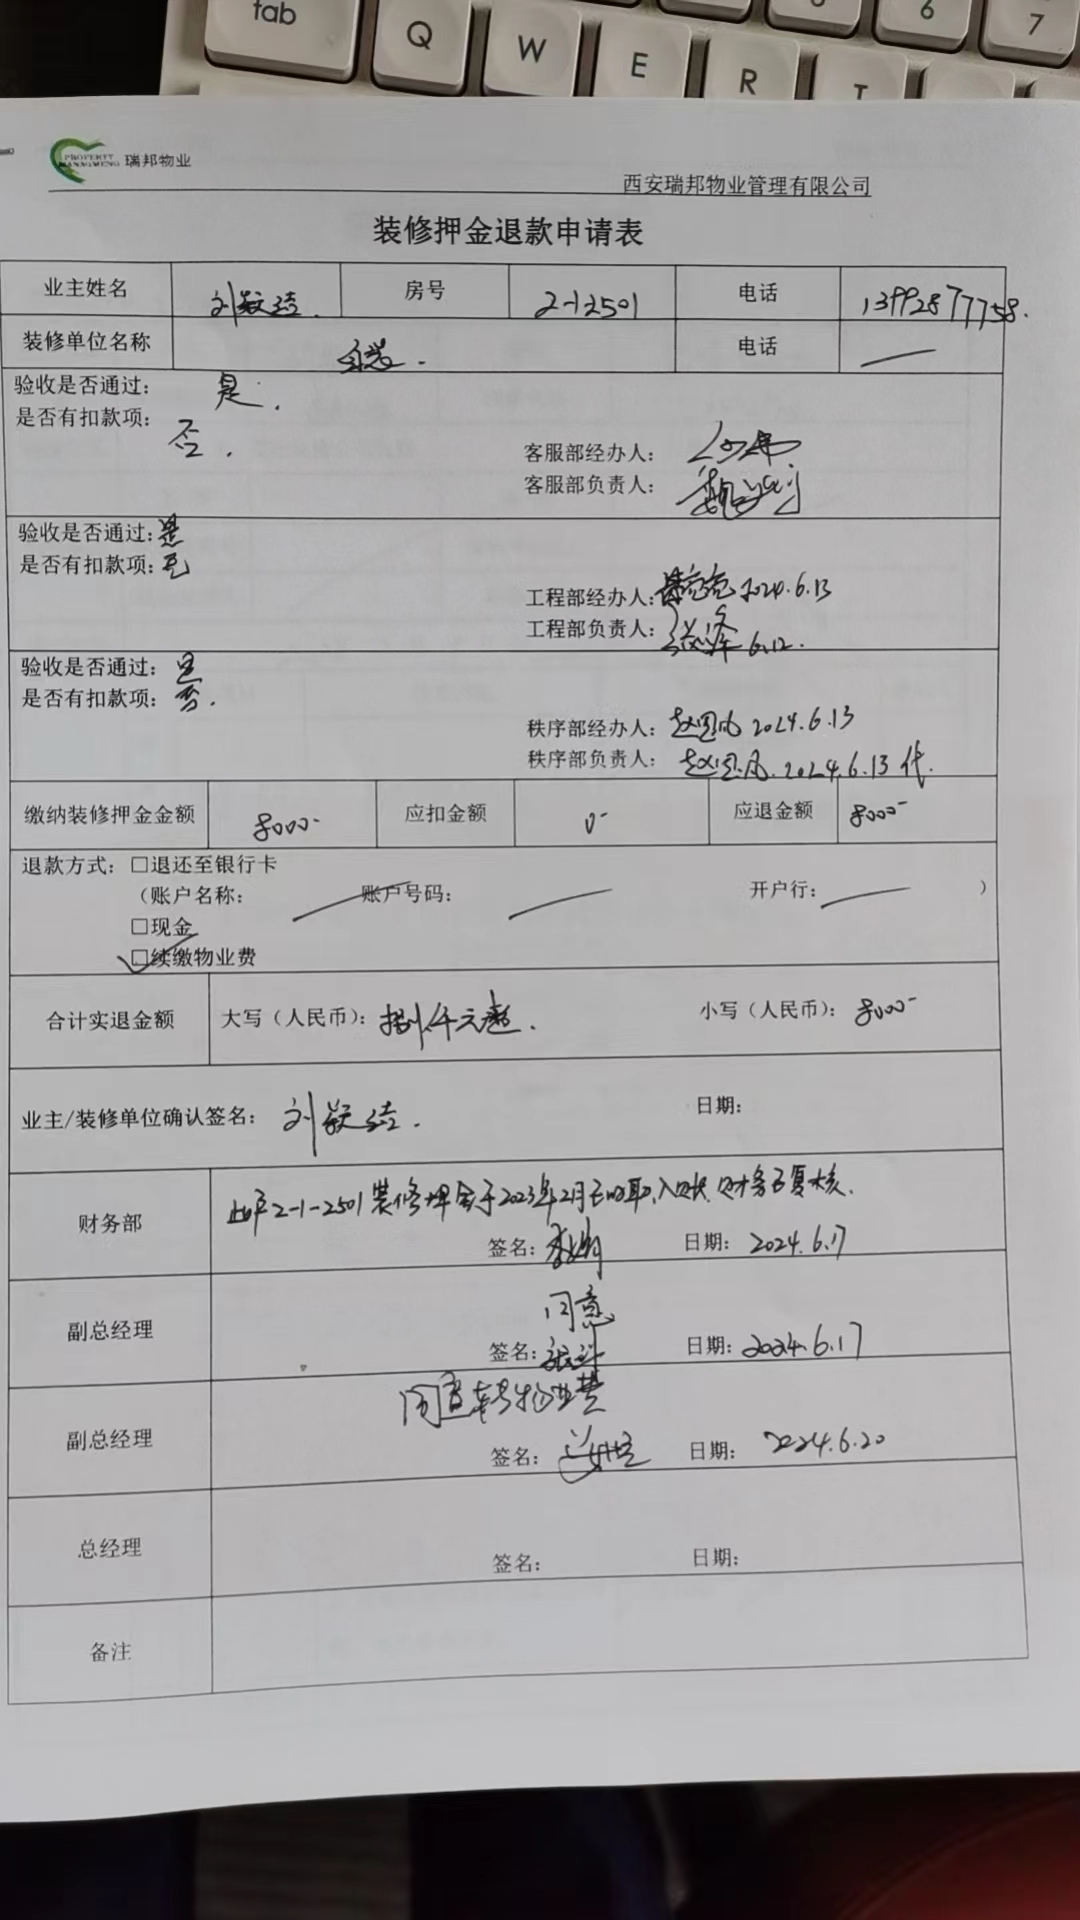 tab Q W E R T 6 7
PROPERTY
MANAGMENG 瑞邦物业
西安瑞邦物业管理有限公司
装修押金退款申请表
业主姓名 房号 2-1-2501 电话 13992877758.
装修单位名称 自装. 电话
验收是否通过: 是.
是否有扣款项: 否.
客服部经办人:
客服部负责人:
验收是否通过: 是
是否有扣款项: 无
工程部经办人: 2024.6.13
工程部负责人: 6.12.
验收是否通过: 是
是否有扣款项: 否.
秩序部经办人: 2024.6.13
秩序部负责人: 2024.6.13 代.
缴纳装修押金金额 8000- 应扣金额 0- 应退金额 8000-
退款方式: □退还至银行卡
(账户名称: 账户号码: 开户行: )
□现金
□续缴物业费
合计实退金额 大写(人民币): 捌仟元整. 小写(人民币): 8000-
业主/装修单位确认签名: 日期:
财务部 此户2-1-2501装修押金于2023年2月已收取,入账.财务已复核.
签名: 日期: 2024.6.17
副总经理 同意
签名: 日期: 2024.6.17
副总经理 同意转物业费
签名: 日期: 2024.6.20
总经理 签名: 日期:
备注